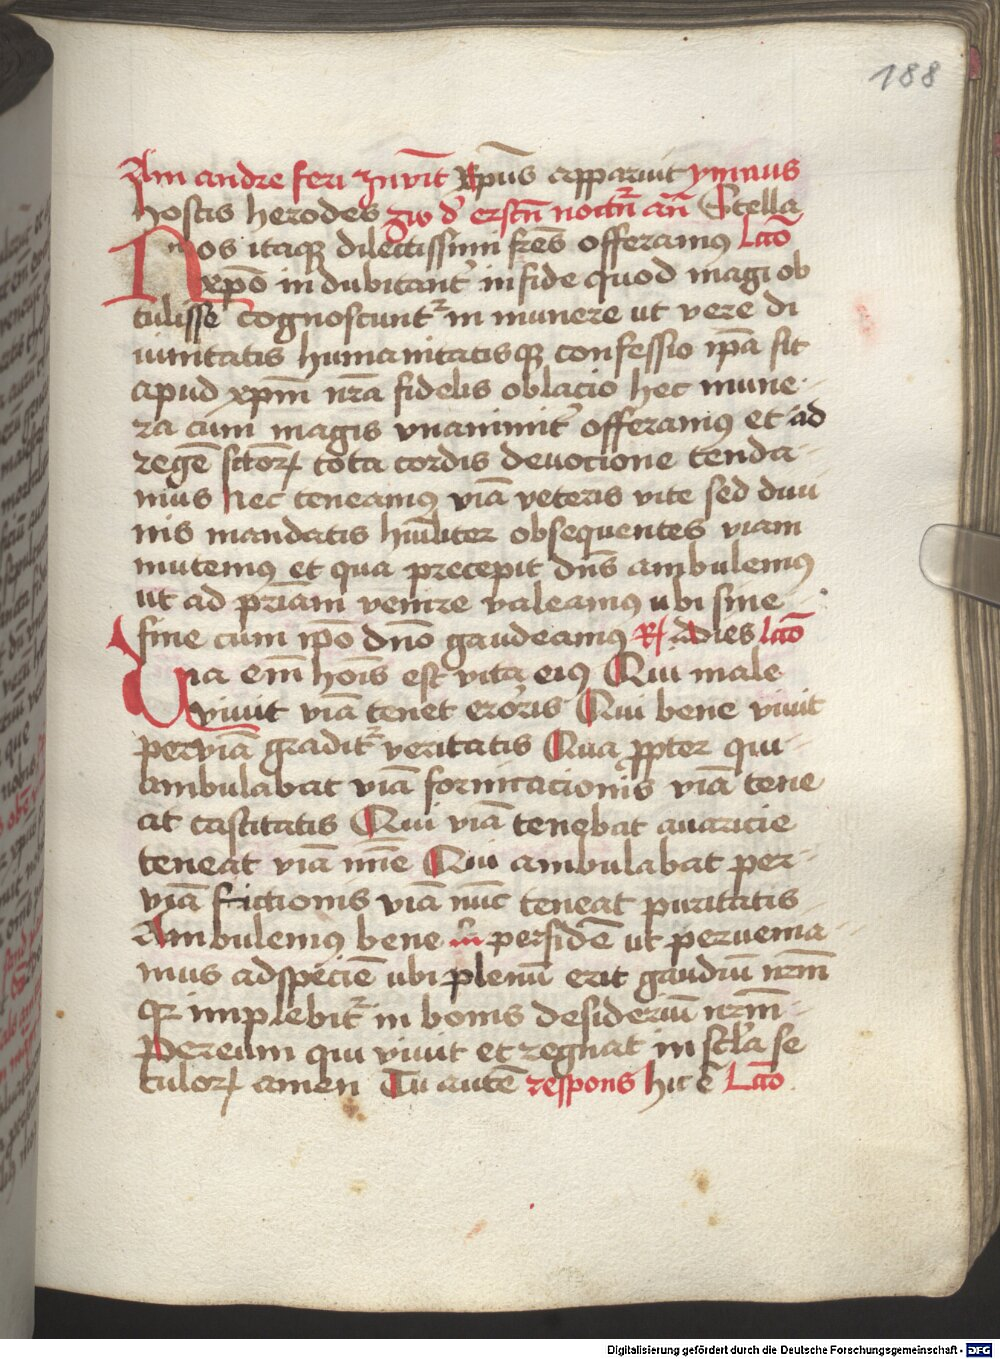 188
Am andre feri Inuit xp̄us apparuit ymnus
hostis herodes zw d' erstn̄ nocturn an̄ Stella
Nos itaq₃ dilectissimi fr̄es offeramꝰ Lc̄o
xp̄o indubitant' in fide quod magi ob
tulisse cognoscunt᷑ in munere ut vere di
uinitatis humanitatisq₃ confessio ip̄a sit
apud xp̄m nr̄a fidelis oblacio hec mune-
ra cum magis vnanimit' offeramꝰ et ad
regē sc̄torꝝ tota cordis deuocione tenda-
mus Nec teneamꝰ viā veteris vite sed diui
nis mandatis hūiliter obsequentes viam
mutemꝰ et qua precepit dn̄s ambulemꝰ
ut ad pr̄iam venire valeamꝰ ubi sine
fine cum ip̄o dn̄o gaudeamꝰ ℟ dies Lc̄o
Via em̄ hōis est vita eiꝰ Qui male
viuit viā tenet eroris Qui bene viuit
per viā gradit᷑ veritatis Qua ꝓpter qui-
ambulabat viā fornicacionis viā tene
at castitatis Qui viā tenebat auaricie
teneat viā mīe Qui ambulabat per-
viā frictionis viā nūc teneat puritatis
Ambulemꝰ bene in per fidē ut peruenia-
mus ad speciē ubi plenū erit gaudiū nr̄m
q₃ implebit᷑ in bonis desideriū nr̄m-
Per eum qui viuit et regnat in sc̄la se
culorꝝ amen Tu autē respons hic ē Lc̄o
Digitalisierung gefördert durch die Deutsche Forschungsgemeinschaft - DFG